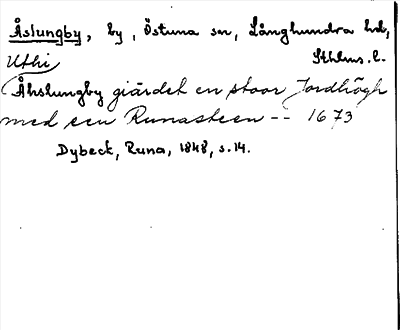 Åslungby, by, Östuna sn, Långhundra hd,
Uthi Sthlms. l.
Åhslungby giärdet en stoor Jordhögh
med een Runasteen -- 1673
Dybeck, Runa, 1848, s. 14.